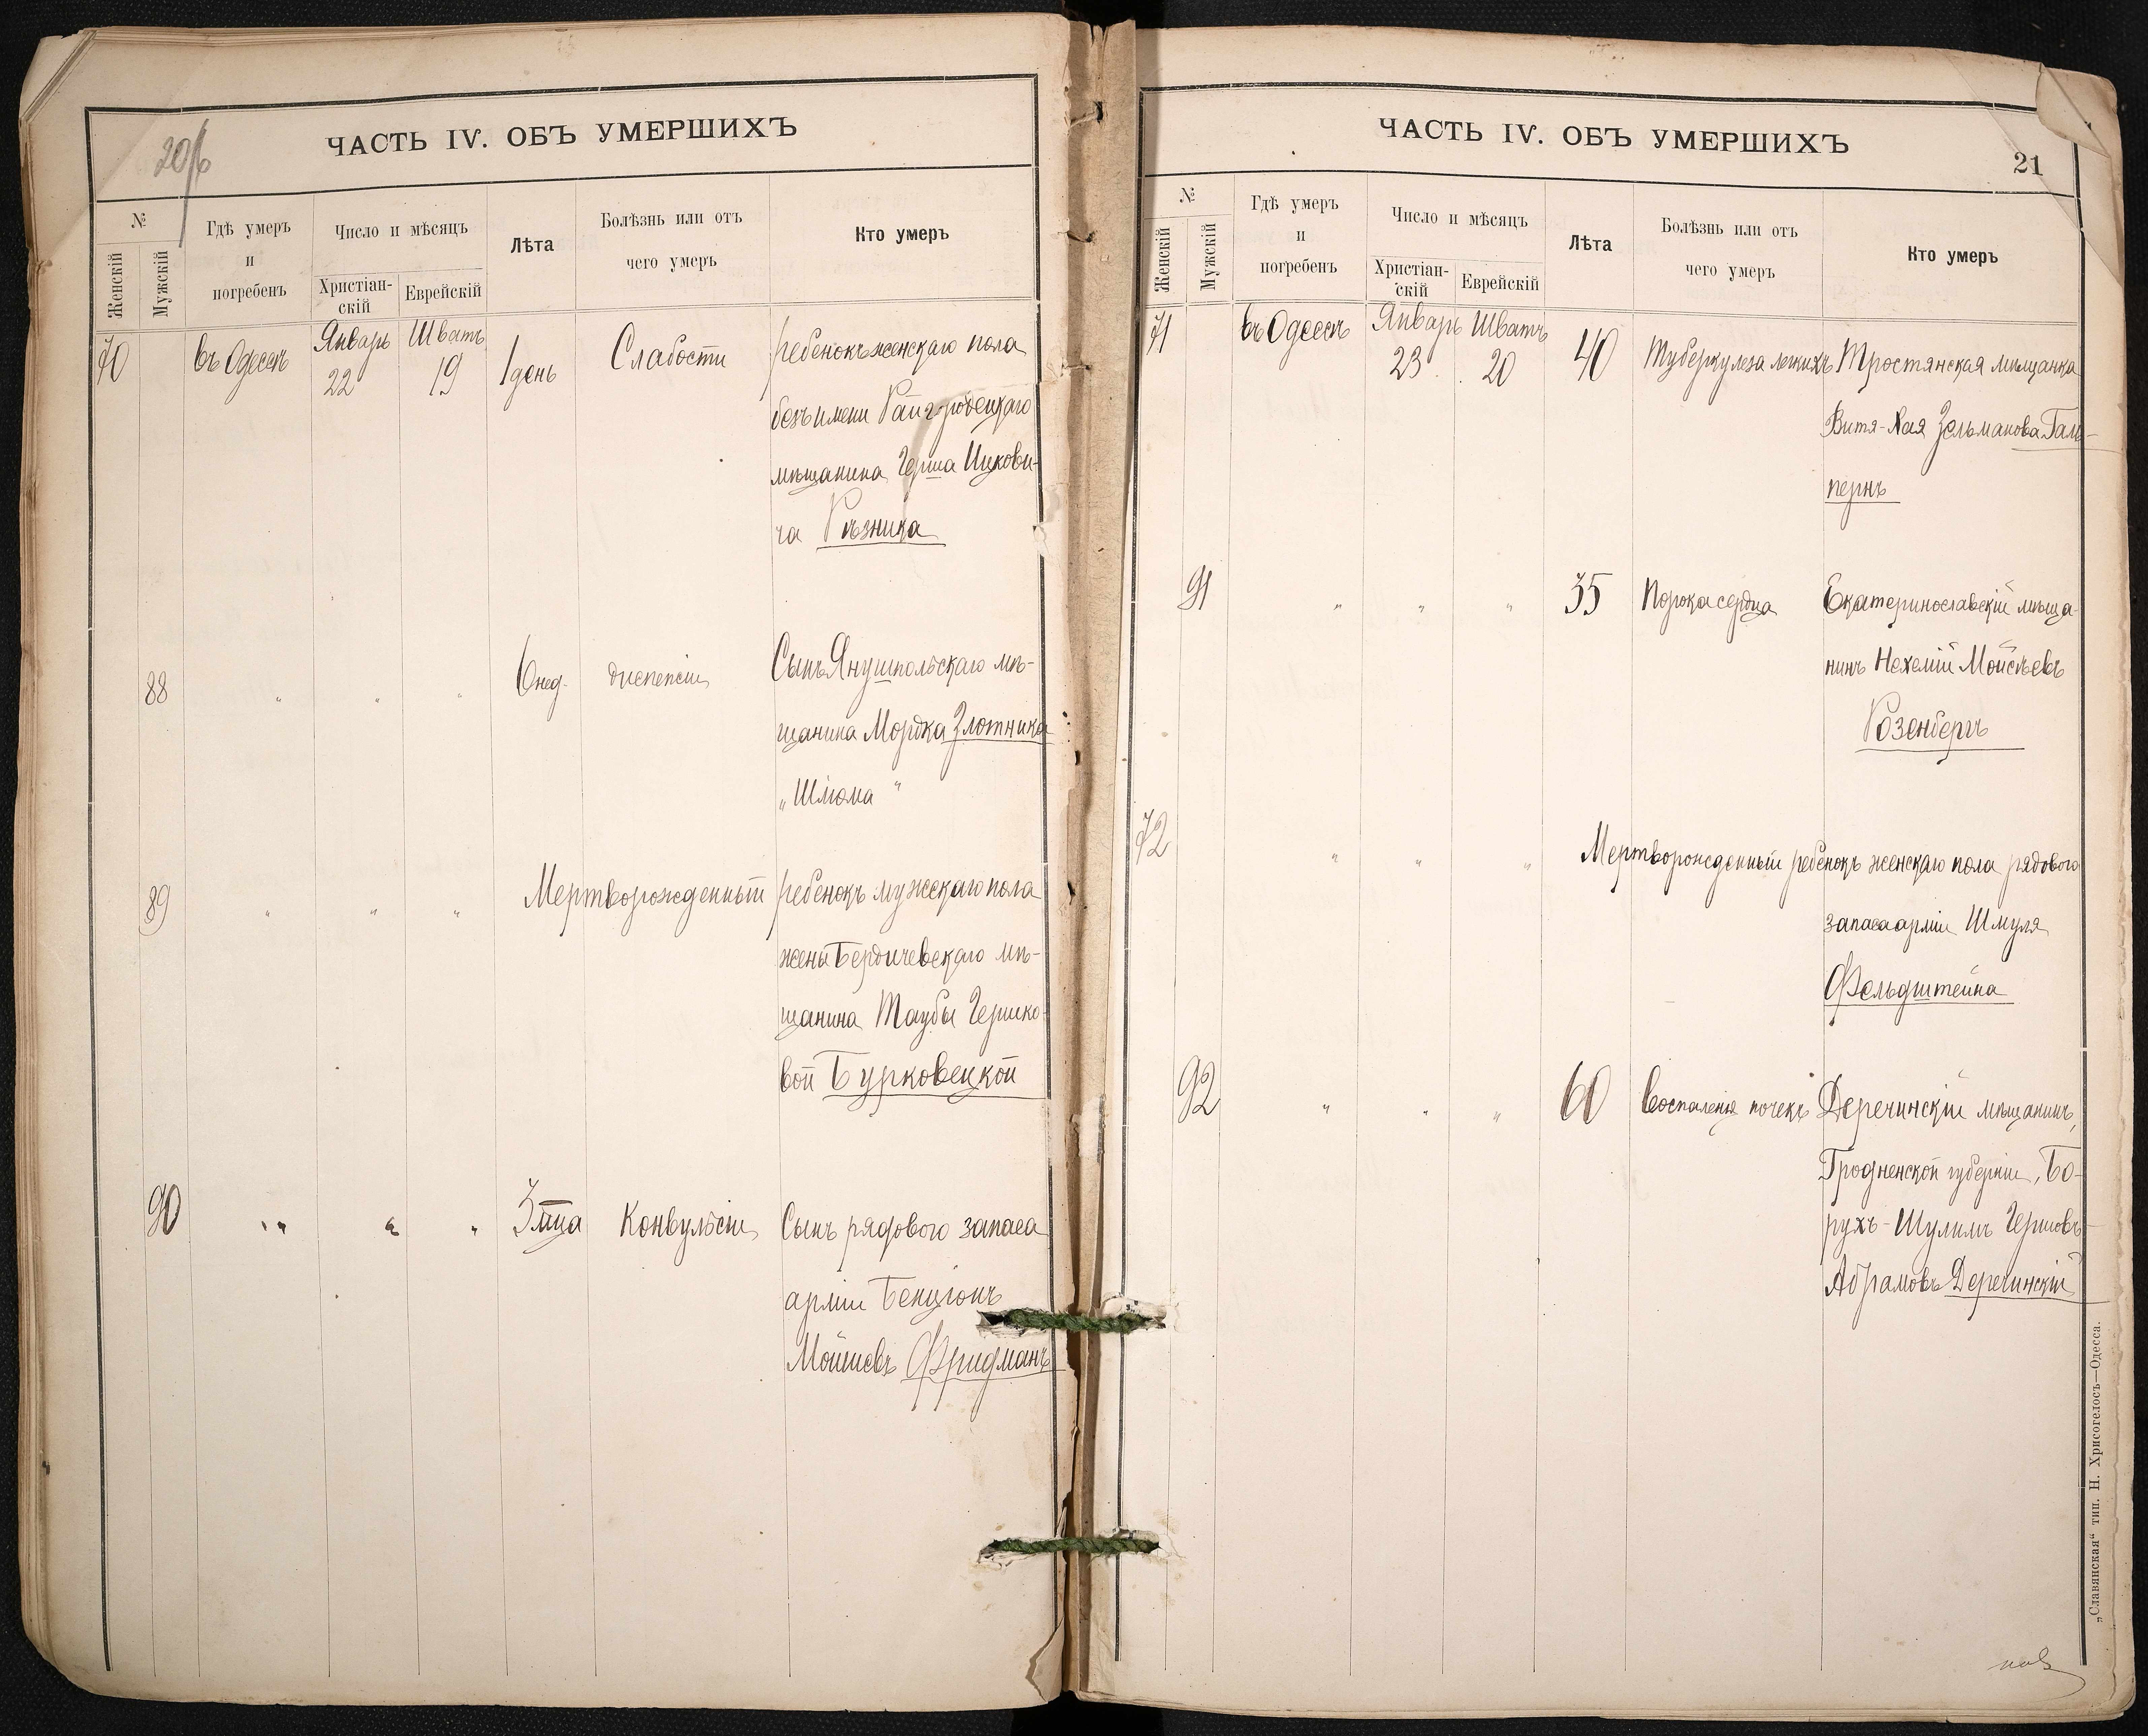 20/б
ЧАСТЬ IV. ОБЪ УМЕРШИХЪ
№
Женскій
Мужскій
Гдѣ умеръ
и
погребенъ
Число и мѣсяцъ
Христіан-
скій
Еврейскій
Лѣта
Болѣзнь или отъ
чего умеръ
Кто умеръ
70 въ Одессѣ Январь 22 Шватъ 19 1 день Слабости ребенокъ женскаго пола
безъ имени Райгродецкаго
мѣщанина Герша Ицкови-
ча Рѣзника
88 " " " 6 нед. диспепсіи Сынъ Янушпольскаго мѣ-
щанина Мордка Злотника
„Шлюма"
89 " " " Мертворожденный ребенокъ мужскаго пола
жены Бердичевскаго мѣ-
щанина Таубы Гершко-
вой Бурковецкой
90 " " " 3 м-ца Конвульсіи Сынъ рядового запаса
арміи Бенціонъ
Мойшевъ Фридманъ
ЧАСТЬ IV. ОБЪ УМЕРШИХЪ
21
№
Женскій
Мужскій
Гдѣ умеръ
и
погребенъ
Число и мѣсяцъ
Христіан-
скій
Еврейскій
Лѣта
Болѣзнь или отъ
чего умеръ
Кто умеръ
71 въ Одессѣ Январь 23 Шватъ 20 40 Туберкулеза легкихъ Тростянская мѣщанка
Витя-Хая Зельманова Галь-
пернъ
91 " " " 35 Порока сердца Екатеринославскій мѣща-
нинъ Нехемій Мойсѣевъ
Розенбергъ
72 " " " Мертворожденный ребенокъ женскаго пола рядового
запаса арміи Шмуля
Фельдштейна
92 " " " 60 Воспаленія почекъ Деречинскій мѣщанинъ,
Гродненской губерніи, Бо-
рухъ-Шулимъ Гершовъ-
Абрамовъ Деречинскій
„Славянская" тип. Н. Хрисогелосъ—Одесса.